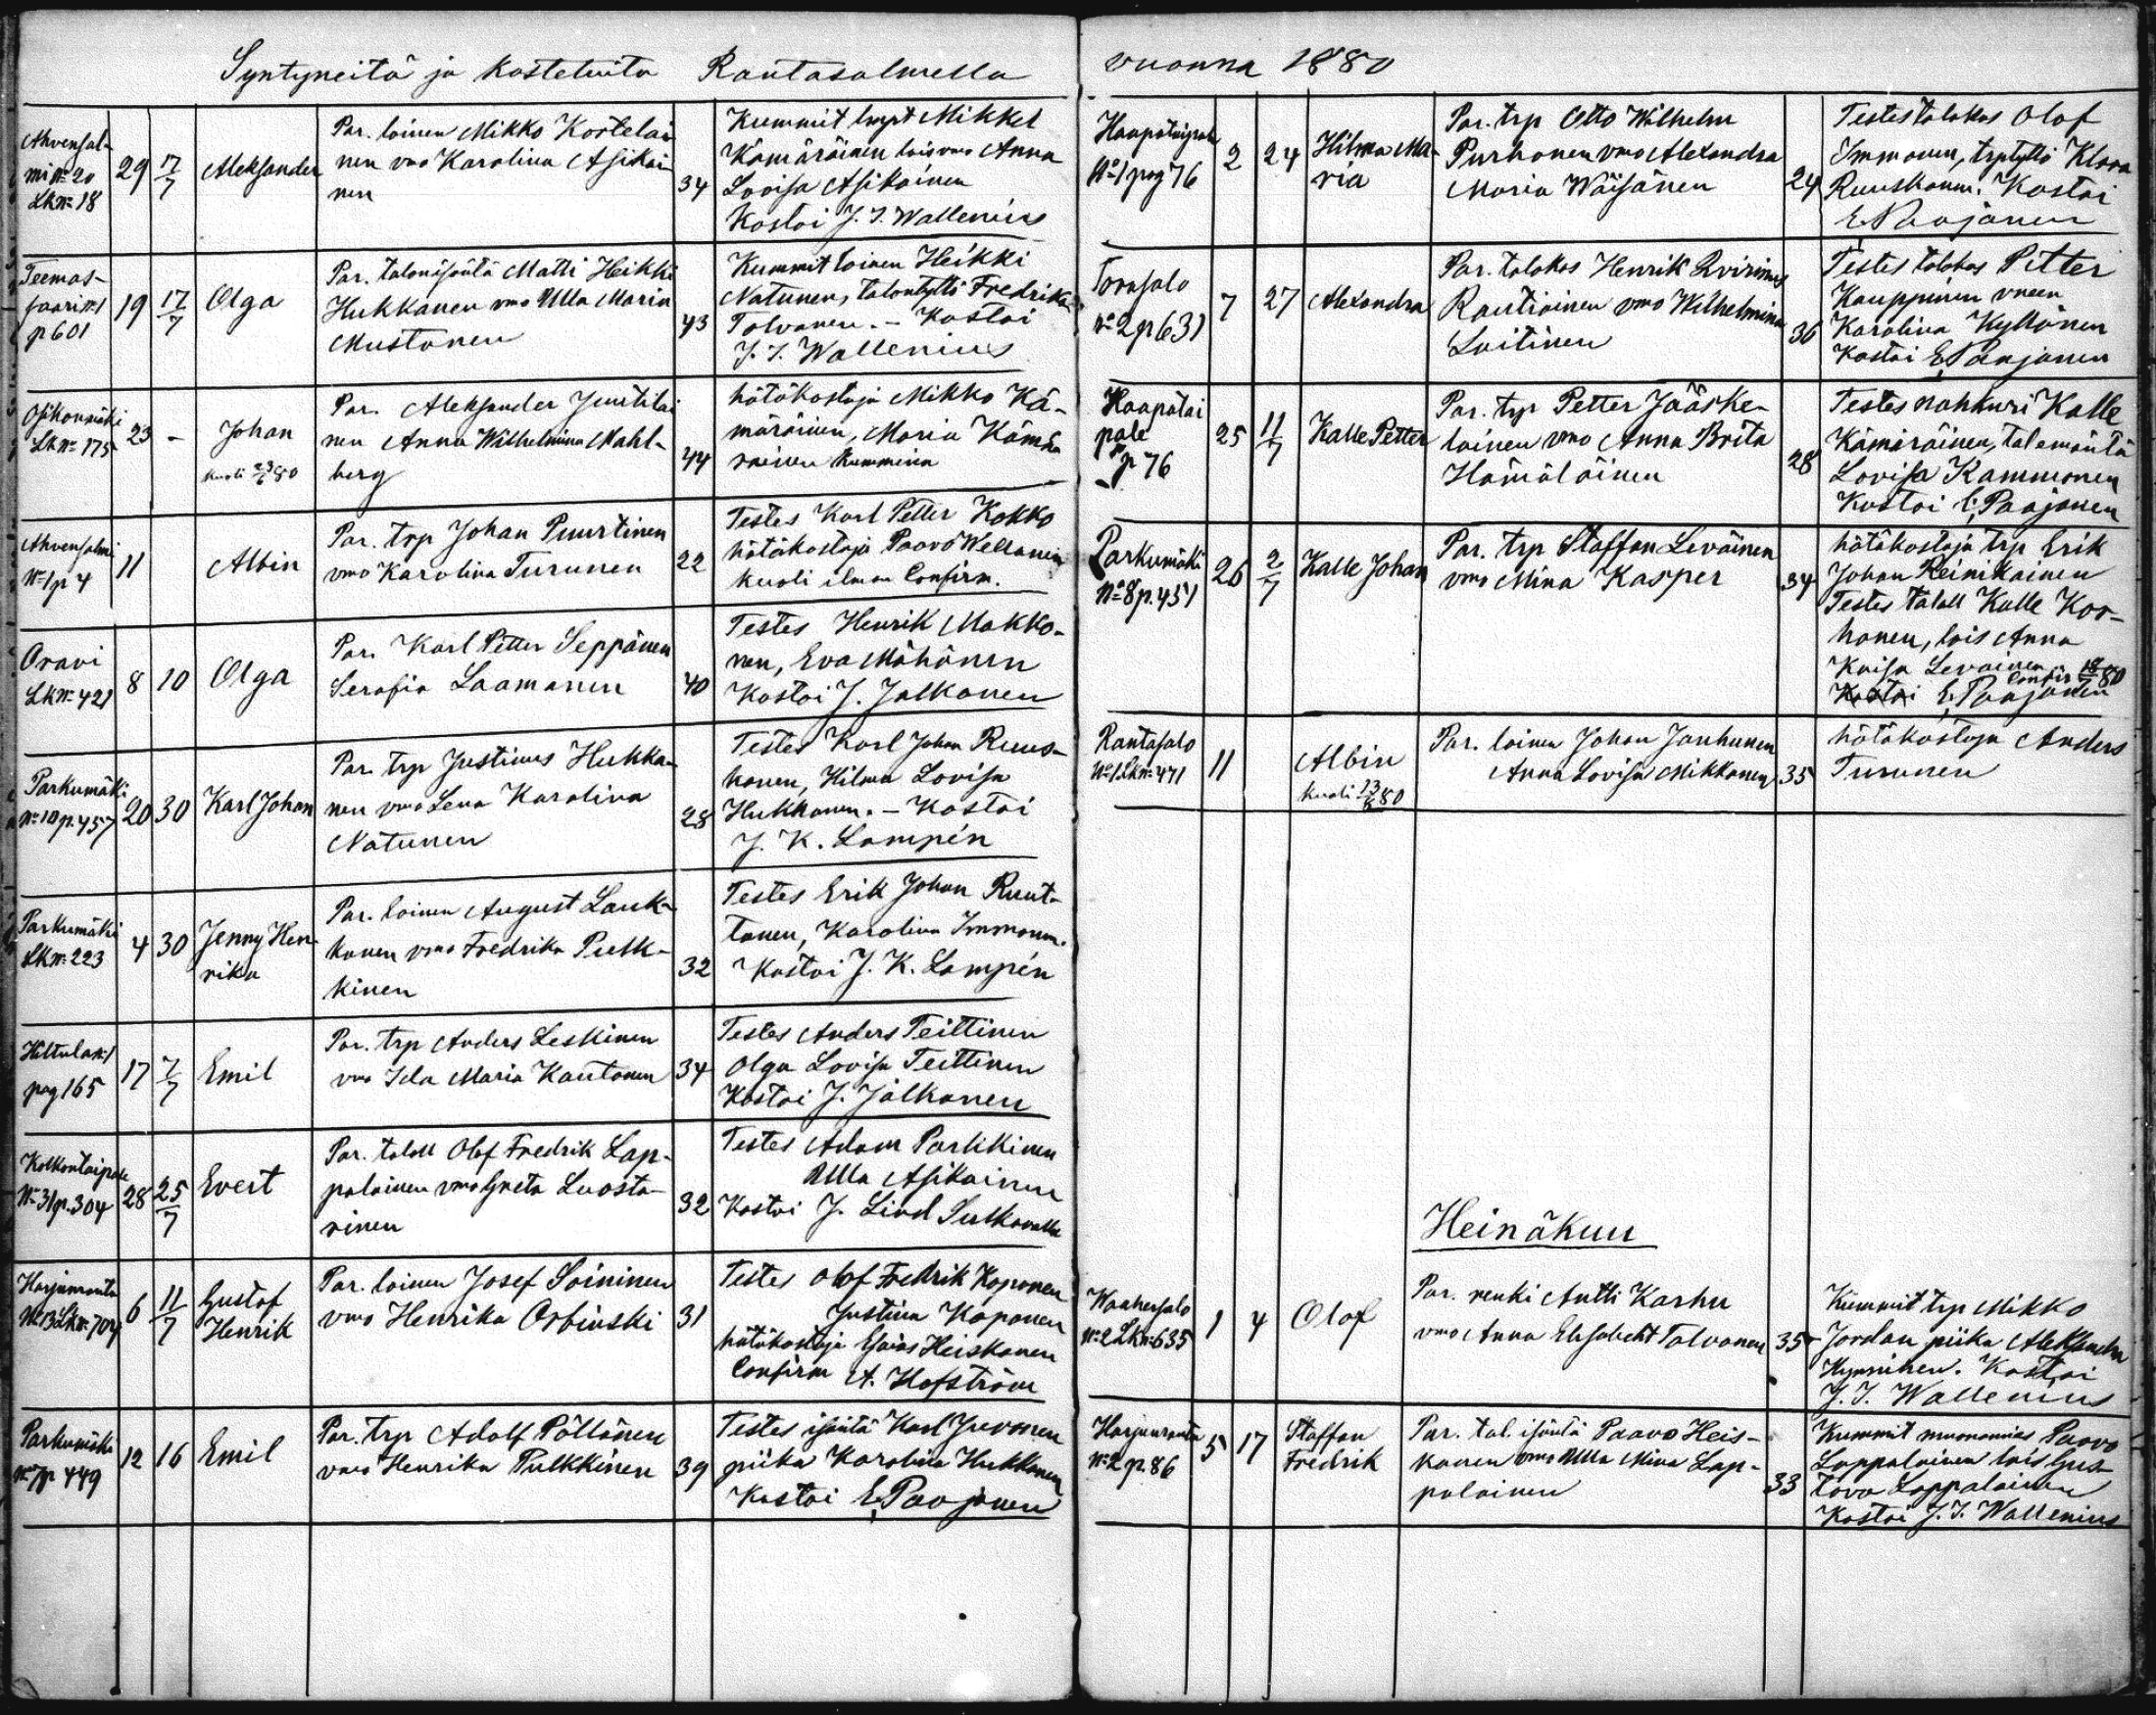 Syntyneitä ja kastetuita Rantasalmella
Ahvensal-
mi No 20
Lk No 18
29 17/7 Aleksander
Par. loinen Mikko Kostelai
nen vmo Karolina Asikai
nen
34
Kummit lmpt Mikkel
Kämäräinen lois vmo Anna
Lovisa Asikainen
Kastoi J. I. Wallenius
Teemas-
saari No 1
p 601
19 17/7 Olga
Par. talonisäntä Matti Heikki
Hukkanen vmo Ulla Maria
Mustonen
43
Kummit loinen Heikki
Natunen, talontyttö Fredrika
Tolvanen. - Kastoi
J. I. Wallenius
Osikonmäki
Lk No 175
23 - Johan
kuoli 23/6 80
Par. Aleksander Juutilai
nen Anna Wilhelmina Mahl-
berg
44
hätäkastaja Mikko Kä-
märäinen, Maria Kämä
räinen kummina
Ahvensalmi
No 1 p 4
11 Albin
Par. trp Johan Puurtinen
vmo Karolina Turunen
22
Testes Karl Petter Kokko
hätäkastaja Paavo Wellanen
kuoli ilman Confirm.
Oravi
Lk No 421
8 10 Olga
Par. Karl Petter Seppänen
Serafia Laamanen
40
Testes Henrik Makko-
nen, Eva Mähönen
Kastoi J. Jalkanen
Parkumäki
No 10 p. 457
20 30 Karl Johan
Par. trp Justinus Hukka-
nen vmo Lena Karolina
Natunen
28
Testes Karl Johan Ruus-
kanen, Hilma Lovisa
Hukkanen. - Kastoi
J. K. Lampén
Parkumäki
Lk No 223
4 30 Jenny Hen-
rika
Par. loinen August Lauk-
kanen vmo Fredrika Pulk-
kinen
32
Testes Erik Johan Ruut-
tanen, Karolina Immonen.
Kastoi J. K. Lampén
Hiltula No 1
pag 165
17 7/7 Emil
Par. trp Anders Leskinen
vmo Ida Maria Kautonen
34
Testes Anders Teittinen
Olga Lovisa Teittinen
Kastoi J. Jalkanen
Kolkontaipale
No 31 p. 304
28 25/7 Evert
Par. taloll Olof Fredrik Lap-
palainen vmo Greta Luosta-
rinen
32
Testes Adam Parkkinen
Ulla Asikainen
Kastoi J. Lind Sulkavalla
Harjunranta
No 13 Lk No 704
6 11/7 Gustaf
Henrik
Par. loinen Josef Soininen
vmo Henrika Orbinski
31
Testes Olof Fredrik Koponen
Justina Koponen
hätäkastaja Esaias Heiskanen
Confirm A. Hofström
Parkumäki
No 7 p 449
12 16 Emil
Par. trp Adolf Pöllänen
vmo Henrika Pulkkinen
39
Testes isäntä Karl Juvonen
piika Karolina Hukkanen
Kastoi E. Paajanen
vuonna 1880
Haapataipale
No 1 pag 76
2 24 Hilma Ma-
ria
Par. trp Otto Wilhelm
Purhonen vmo Alexandra
Maria Wäisänen
24
Testes talokas Olof
Immonen, trp tyttö Klara
Ruuskanen. Kastoi
E. Paajanen
Torasalo
No 2 p 631
7 27 Alexandra
Par. talokas Henrik
Rautiainen vmo Wilhelmina
Laitinen
36
Testes talokas Petter
Kauppinen vneen
Karolina Kyllönen
Kastoi E. Paajanen
Haapatai
pale
p 76
25 11/7 Kalle Petter
Par. trp Petter Jääske-
läinen vmo Anna Brita
Hämäläinen
28
Testes nahkuri Kalle
Kämäräinen, talemäntä
Lovisa Kammonen
Kastoi E. Paajanen
Parkumäki
No 8 p. 451
26 2/7 Kalle Johan
Par. trp Staffan Leväinen
vmo Mina Kasper
34
hätäkastaja trp Erik
Johan Reinikainen
Testes taloll Kalle Kor-
honen, lois Anna
Kaisa Leväinen
Confir 18/6 80
Kastoi E. Paajanen
Rantasalo
No 1 Lk No 471
11 Albin
kuoli 13/6 80
Par. loinen Johan Janhunen
Anna Lovisa Mikkonen
35
hätäkastaja Anders
Turunen
Heinäkuu
Waahersalo
No 2 Lk No 635
1 4 Olof
Par. renki Antti Karhu
vmo Anna Elisabeht Tolvanen
35
Kummit trp Mikko
Jordan piika Aleksandra
Hynninen. Kastoi
J. I. Wallenius
Harjunranta
No 2 p. 86
5 17 Staffan
Fredrik
Par. tal. isäntä Paavo Heis-
kanen vmo Ulla Mina Lap-
palainen
33
Kummit muonamies Paavo
Lappalainen lois Gus-
tava Lappalainen
Kastoi J. I. Wallenius